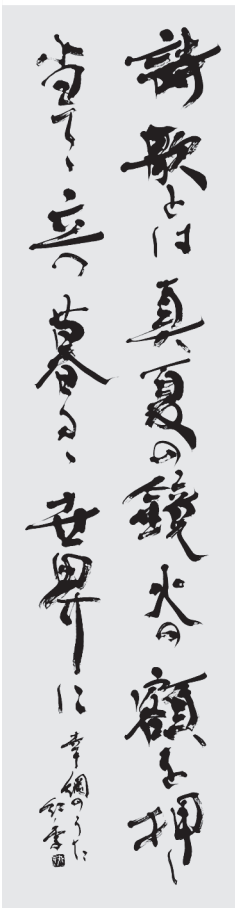 詩歌とは真夏の鏡火の額を押し
当てゝ立つ暮るゝ世界に
幸綱のうた